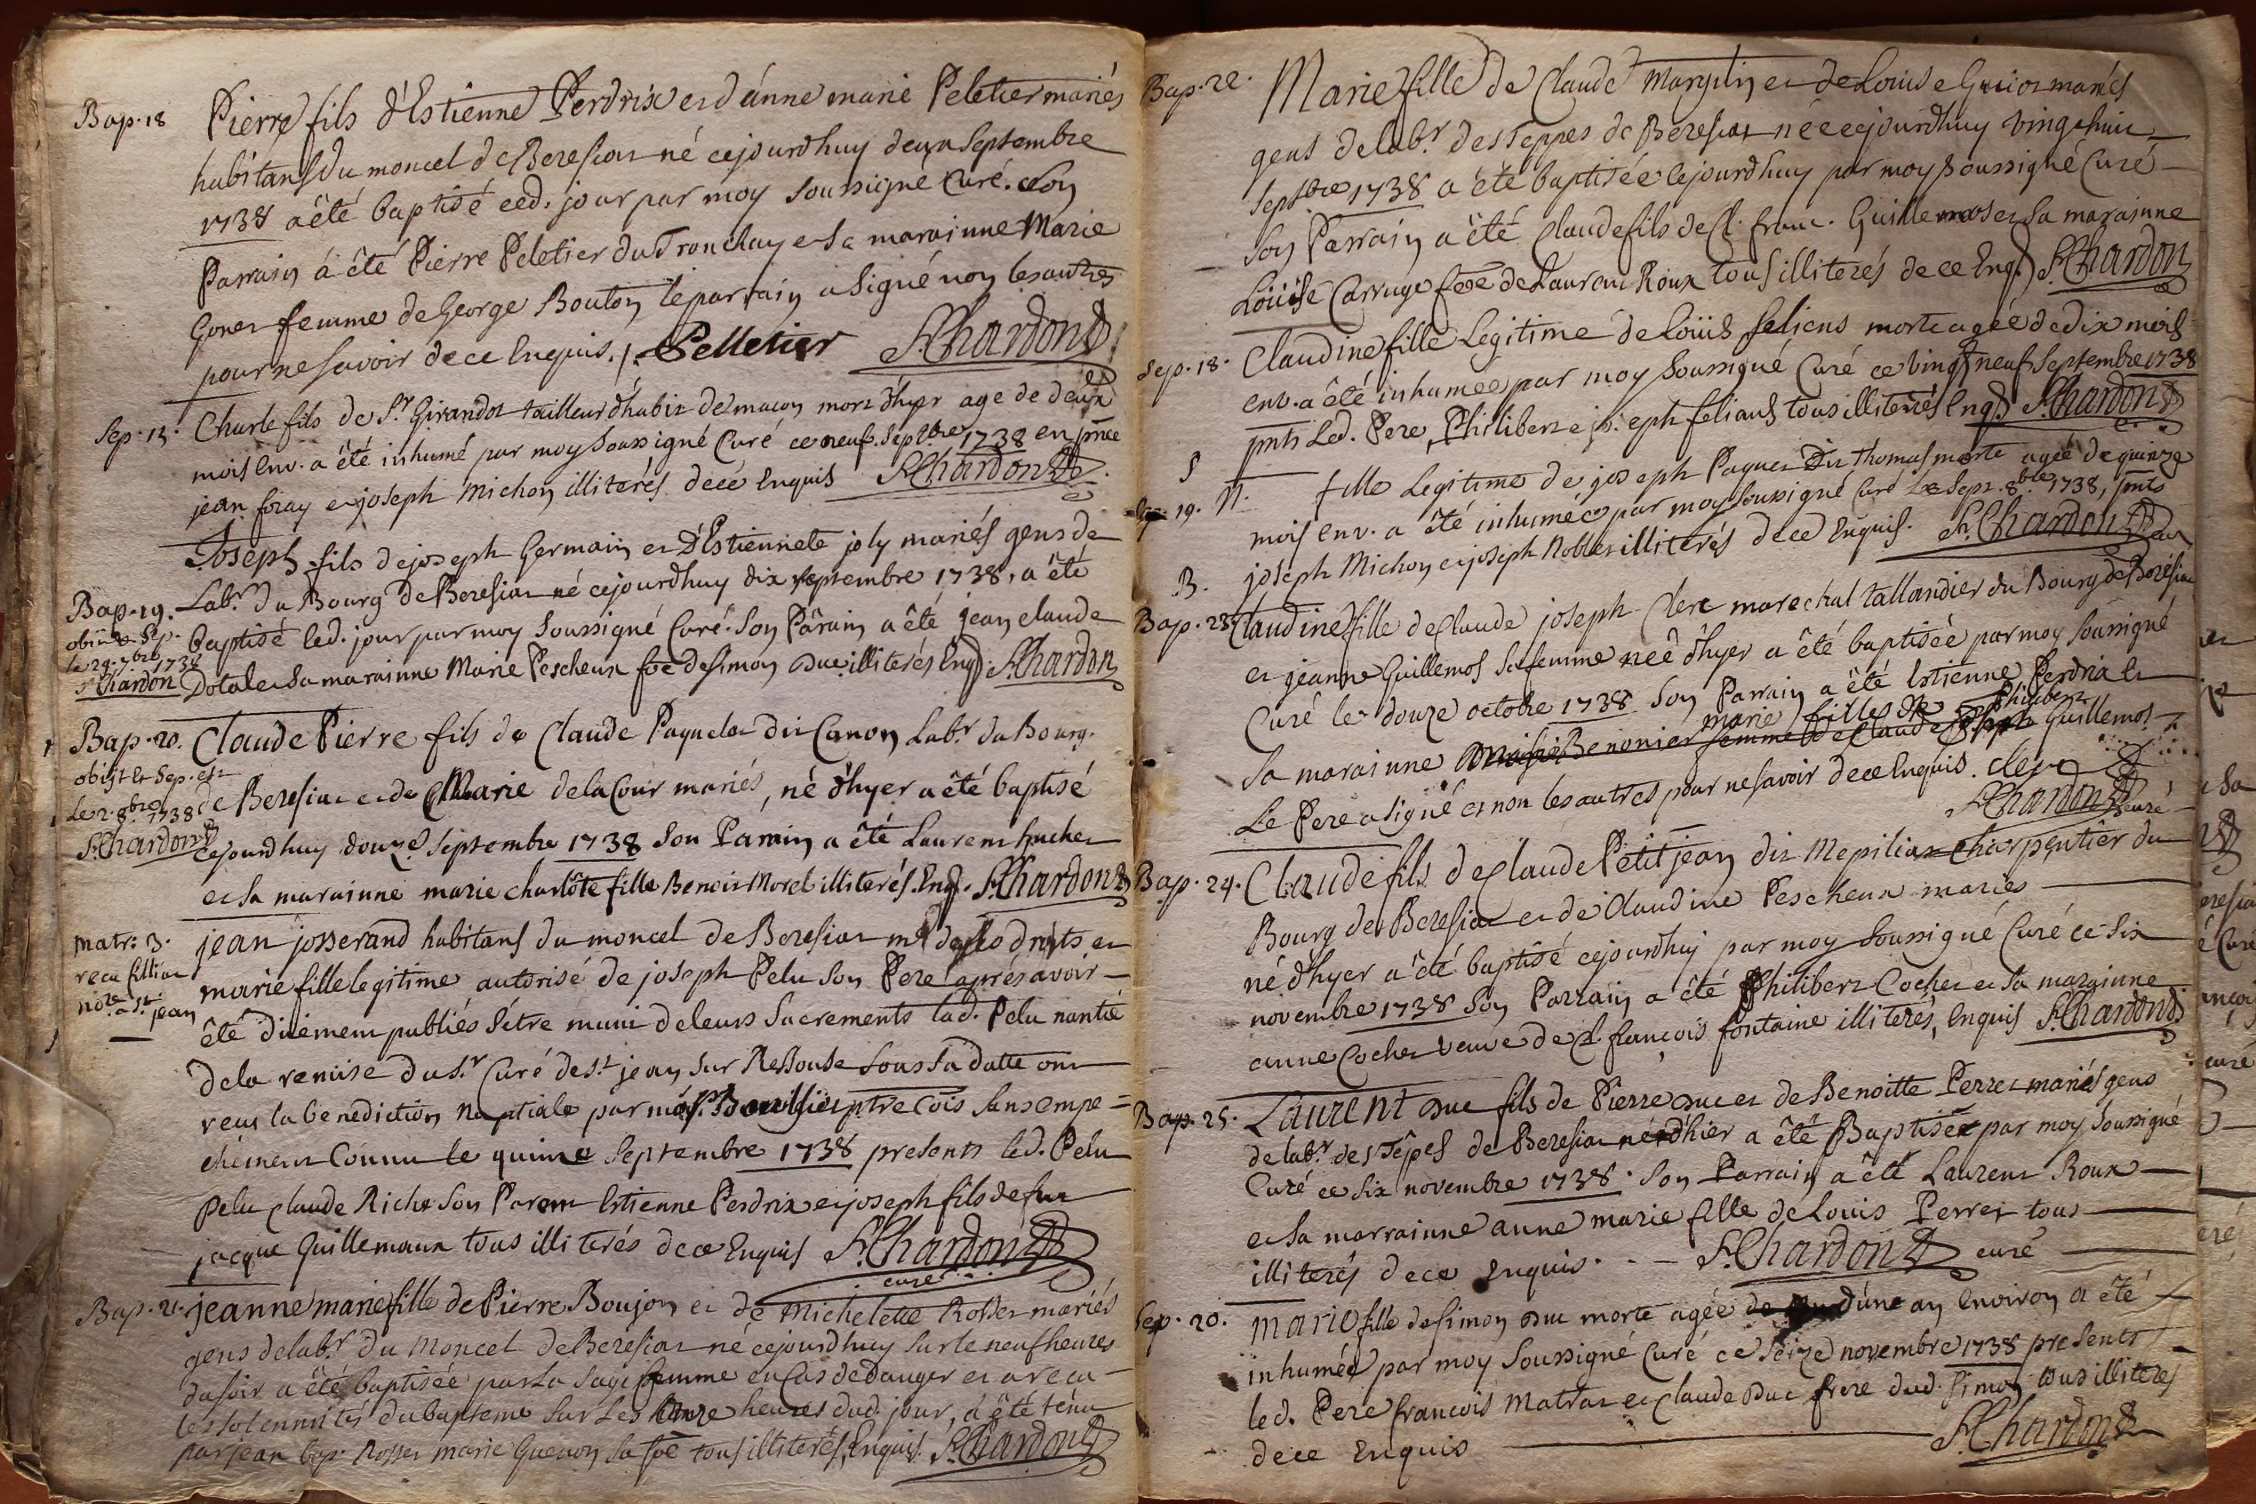 Bap. 18 Pierre fils d'Estienne Perdrix et d'anne marie Peletier mariés
habitans du moncel de Beresiat né cejourdhuy deux Septembre
1738 a êté baptisé ced. jour par moy soussigné Curé. Son
Parrain á êté Pierre Peletier du Tronchay et sa marainne Marie
Gonet femme de George Bouton le parrain a signé non les autres
pour ne savoir de ce Enquis. Pelletier F. Chardon
Sep. 15. Charle fils de Sr. Girandot tailleur d'habit de macon mort d'hyer age de deux
mois env. a êté inhumé par moy soussigné Curé ce neuf. Septbre 1738 en pnce
jean foray et joseph Michon illiterés de ce Enquis F. Chardon
Joseph fils de joseph Germain et D'Estiennete joly mariés gens de
Bap. 19. Labr. du Bourg de Beresiat né cejourdhuy dix septembre 1738, a êté
obiit et Sep.
le 29. 7bre 1738
F. Chardon
baptisé led. jour par moy soussigné Curé. Son Pârain a êté jean claude
Dotal et sa marainne Marie Pescheux fôe de Simon Duc illiterés Enq. F. Chardon
Bap. 20. Claude Pierre fils de Claude Paquelet dit Canon Labr. du Bourg
obijt et Sep. est
Le 2. 8bre 1738
F. Chardon
de Beresiat et de Marie de la Cour mariés, né d'hyer a êté baptisé
cejourdhuy douze Septembre 1738 Son Parain a êté Laurent huchet
et sa marainne marie charlôte fille Benoit Morel illiterés. Enq. F. Chardon
matr. 3.
recu fillion
nore. a St. jean
jean josserand habitans du moncel de Beresiat droits et
marie fille legitime autorisé de joseph Pelu son Pere aprés avoir
êté düement publiés s'être muni de leurs Sacrements lad. Pelu nantie
de la remise du Sr. Curé de St. jean sur Ressouse sous sa datte ont
recu la benediction nuptiale par ptre Cois sans empe=
chement Connu le quinze Septembre 1738 presents led. Pelu
Pelu claude Riche son Parent Estienne Perdrix et joseph fils de feu
jacque Guillemaux tous illiterés de ce Enquis F. Chardon
curé
Bap. 21. jeanne marie fille de Pierre Boujon et de Michelette Rosset mariés
gens de labr. du Moncel de Beresiat né cejourdhuy sur le neuf heures
du soir a êté baptisée par la sage femme en Cas de danger et a recu
les solennités du bapteme sur les onze heures dud. jour, á êté tenu
par jean bap. Rosset marie Guenon sa fôe tous illiterés, Enquis. F. Chardon
Bap. 22. Marie fille de Claude Marguin et de Louise Guiot mariés
gens de labr. des Teppes de Beresiat née cejourdhuy vingt huit
Septbre 1738 a êté baptisée lejourdhuy par moy soussigné Curé
Son Parrain a êté Claude fils de Cl. franc. Guillemos et sa marainne
Loüise Carruge fôe de Laurent Roux tous illiterés de ce Enq. F. Chardon
Sep. 18. Claudine fille Legitime de Loüis feliens morte agée de dix mois
env. a êté inhumée par moy soussigné Curé ce vingt neuf Septembre 1738
pnts Led. Pere, Philibert et joseph feliens tous illiterés Enq. F. Chardon
S
Sep. 19. N. fille Legitime de joseph Paquet Dit thomas morte agée de quinze
mois env. a êté inhumée par moy soussigné Curé Le Sept. 8bre. 1738, pnts
joseph Michon et joseph Noblet illiterés de ce Enquis. F. Chardon
B.
Bap. 23. Claudine fille de Claude joseph Clerc marechal tallandier du Bourg de Beresiat
et jeanne Guillemos sa femme née d'hyer a êté baptisée par moy soussigné
Curé le douze octobre 1738 Son Parrain a êté Estienne Perdrix et
marie fille de Philibert
Sa marainne Benonier femme de Claude Joseph Guillemos
Le Pere a signé et non les autres pour ne savoir de ce Enquis. clerc
F. Chardon curé
Bap. 24. Claude fils de Claude Petitjean dit Mepiliat charpentier du
Bourg de Beresiat et de Claudine Pescheux mariés
né d'hyer a êté baptisé cejourdhuj par moy soussigné Curé ce six
novembre 1738 Son Parrain a êté Philibert Cochet et sa marainne
anne Cochet veuve de Cl. françois fontaine illiterés, Enquis F. Chardon
Bap. 25. Laurent Duc fils de Pierre Duc et de Benoitte Perret mariés gens
de labr. des Têpes de Beresiat né d'hier a êté Baptisé par moy soussigné
Curé ce six novembre 1738. Son Parrain a êté Laurent Roux
et sa marrainne anne marie fille de Louis Perret tous
illiterés de ce Enquis. F. Chardon curé
Sep. 20. Marie fille de Simon Duc morte agée d'une an Environ a êté
inhumée par moy soussigné Curé ce Seize novembre 1738 presents
led. Pere francois Matrat et claude Duc frere dud. Simon tous illiterés
de ce Enquis F. Chardon